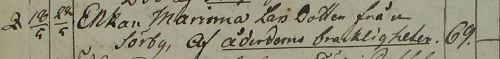 2 18/5 22/5 Enkan Mamma Lars Dotter från
Sörby, af åderdoms brackligheter. 69.